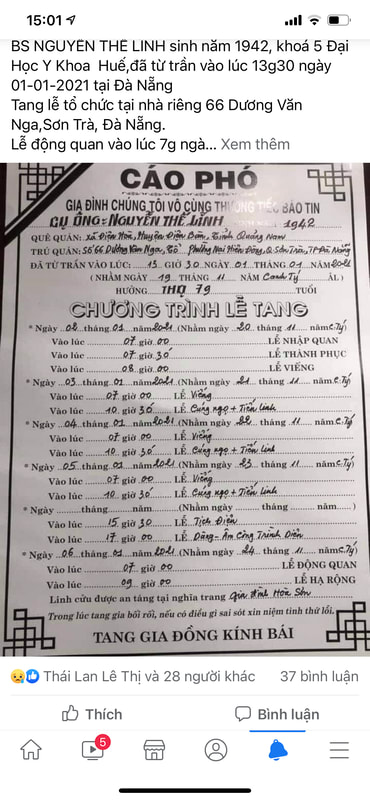 15:01
BS NGUYỄN THẾ LINH sinh năm 1942, khoá 5 Đại
Học Y Khoa Huế,đã từ trần vào lúc 13g30 ngày
01-01-2021 tại Đà Nẵng
Tang lễ tổ chức tại nhà riêng 66 Dương Văn
Nga,Sơn Trà, Đà Nẵng.
Lễ động quan vào lúc 7g ngà... Xem thêm
CÁO PHÓ
GIA ĐÌNH CHÚNG TÔI VÔ CÙNG THƯƠNG TIẾC BÁO TIN
CỤ ÔNG: NGUYỄN THẾ LINH 1942
QUÊ QUÁN: Xã Điện Hòa, Huyện Điện Bàn, Tỉnh Quảng Nam
TRÚ QUÁN: Số 66 Dương Văn Nga, Tổ Phường Nại Hiên Đông, Q Sơn Trà, TP Đà Nẵng
ĐÃ TỪ TRẦN VÀO LÚC: 13 GIỜ 30 NGÀY 01 THÁNG 01 NĂM 2021
( NHẰM NGÀY 19 THÁNG 11 NĂM Canh Tý ÂL )
HƯỞNG THỌ 79 TUỔI
CHƯƠNG TRÌNH LỄ TANG
* Ngày 02 tháng 01 năm 2021 (Nhằm ngày 20 tháng 11 năm C.Tý)
Vào lúc 07 giờ 00 LỄ NHẬP QUAN
Vào lúc 07 giờ 30 LỄ THÀNH PHỤC
Vào lúc 08 giờ 00 LỄ VIẾNG
* Ngày 03 tháng 01 năm 2021 (Nhằm ngày 21 tháng 11 năm C.Tý)
Vào lúc 07 giờ 00 LỄ Viếng
Vào lúc 10 giờ 30 LỄ Cúng ngọ + Tiến linh
* Ngày 04 tháng 01 năm 2021 (Nhằm ngày 22 tháng 11 năm C.Tý)
Vào lúc 07 giờ 00 LỄ Viếng
Vào lúc 10 giờ 30 LỄ Cúng ngọ + Tiến linh
* Ngày 05 tháng 01 năm 2021 (Nhằm ngày 23 tháng 11 năm C.Tý)
Vào lúc 07 giờ 00 LỄ Viếng
Vào lúc 10 giờ 30 LỄ Cúng ngọ + Tiến linh
* Ngày tháng năm (Nhằm ngày tháng năm )
Vào lúc 15 giờ 30 LỄ Tịch Điện
Vào lúc 17 giờ 00 LỄ Dâng - Âm Công Trình Diện
* Ngày 06 tháng 01 năm 2021 (Nhằm ngày 24 tháng 11 năm C.Tý)
Vào lúc 07 giờ 00 LỄ ĐỘNG QUAN
Vào lúc 09 giờ 00 LỄ HẠ RỘNG
Linh cữu được an táng tại nghĩa trang Gia Đình Hòa Sơn
Trong lúc tang gia bối rối, nếu có điều gì sai sót xin niệm tình thứ lỗi.
TANG GIA ĐỒNG KÍNH BÁI
Thái Lan Lê Thị và 28 người khác 37 bình luận
Thích Bình luận
5